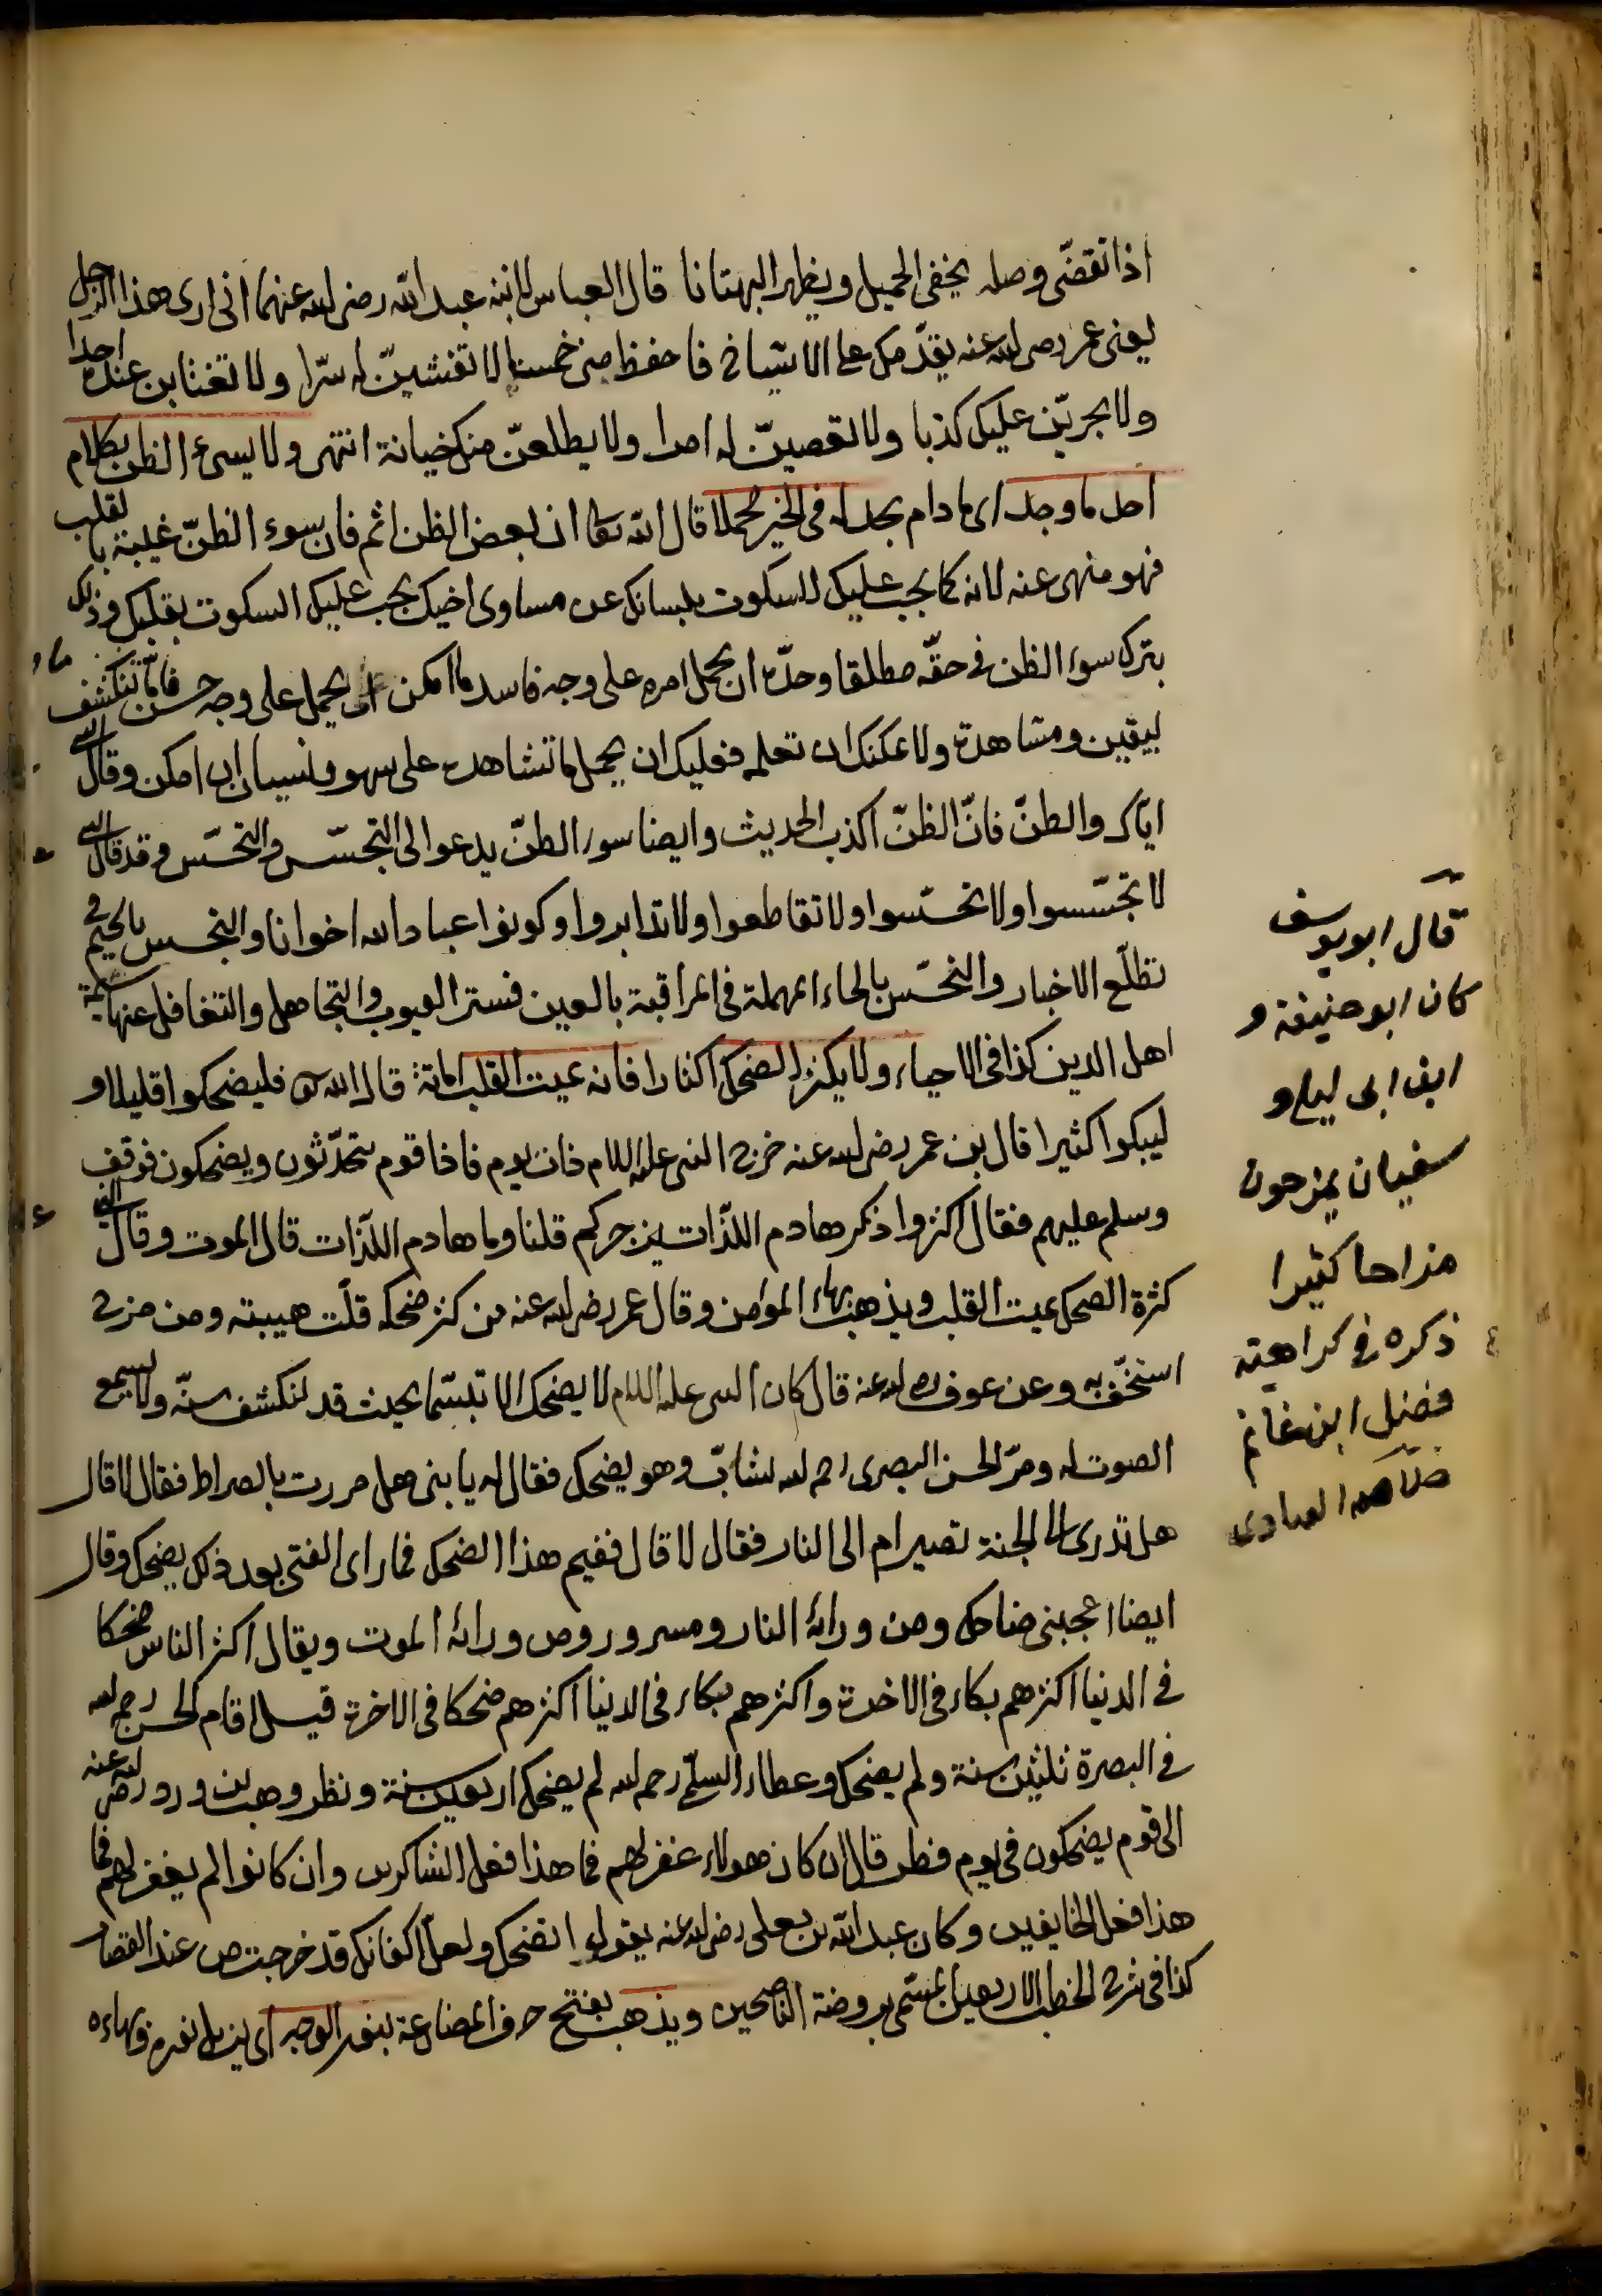 اذا تقضّى وصله يخفى الجميل ويظهر البهتانا قال العباس لابنه عبد الله رضى الله عنهما انى ارى هذا الرجل
يعنى عمر رضى الله عنه يقدّمك على الاشياخ فاحفظ منى خمسا لا تفشينّ له سرّا ولا تغتابن عنده احدا
ولا يجربّن عليك كذبا ولا تعصينّ له امرا ولا يطلعنّ منك خيانة انتهى ولا يسئ الظن بكلام
احد ما وجد اى ما دام يجد له فى الخير محملا قال الله تعالى ان بعض الظن اثم فان سوء الظنّ غيبة بالقلب
فهو منهى عنه لانه كما يجب عليك السكوت بلسانك عن مساوى اخيك يجب عليك السكوت بقلبك وذلك
بترك سوء الظن فى حقّه مطلقا وحدّه ان يحمل امره على وجه فاسد ما امكن ان يحمل على وجه حسن فامّا ما تنكشف
بيقين ومشاهدة ولا يمكنك ان تعلمه فعليك ان يحمل ما تشاهده على سهو ونسيان ان امكن وقال النبى
ايّاك والظنّ فانّ الظنّ اكذب الحديث وايضا سوء الظنّ يدعو الى التجسّس والتحسّس وقد قال النبى
لا تجسّسوا ولا تحسّسوا ولا تقاطعوا ولا تدابروا وكونوا عباد الله اخوانا والتجسس بالجيم فى
تطلّع الاخبار والتحسّس بالحاء المهملة فى المراقبة بالعين فستر العيوب والتجاهل والتغافل عنها سمة
اهل الدين كذا فى الاحياء ولا يكثر الضحك اكثارا فانه يميت القلب اماتة قال الله تعالى فليضحكوا قليلا و
ليبكوا كثيرا قال بن عمر رضى الله عنه خرج النبى عليه السلام ذات يوم فاذا قوم يتحدّثون ويضحكون فوقف
وسلم عليهم فقال اكثروا ذكر هادم اللذّات يزجركم قلنا وما هادم اللذّات قال الموت وقال النبى
كثرة الضحك يميت القلب ويذهب بهاء المؤمن وقال عمر رضى الله عنه من كثر ضحكه قلّت هيبته ومن مزح
استخفّ به وعن عوف رضى الله عنه قال كان النبى عليه السلام لا يضحك الا تبسّما بحيث قد تنكشف سنّه ولا يسمع
الصوت له ومرّ الحسن البصرى رحمه الله بشابّ وهو يضحك فقال له يا بنى هل مررت بالصراط فقال لا قال
هل تدرى الى الجنة تصير ام الى النار فقال لا قال ففيم هذا الضحك فما راى الفتى بعد ذلك يضحك وقال
ايضا اعجبنى ضاحك ومن ورائه النار ومسرور ومن ورائه الموت ويقال اكثر الناس ضحكا
فى الدنيا اكثرهم بكاء فى الاخرة واكثرهم بكاء فى الدنيا اكثرهم ضحكا فى الاخرة قيل اقام الحسن رحمه الله
فى البصرة ثلثين سنة ولم يضحك وعطاء السلمى رحمه الله لم يضحك اربعين سنة ونظر وهب بن ورد رضى الله عنه
الى قوم يضحكون فى يوم فطر قال ان كان هولاء غفر لهم فما هذا فعل الشاكرين وان كانوا لم يغفر لهم فما
هذا فعل الخايفين وكان عبد الله بن يعلى رضى الله عنه يقول اتضحك ولعل اكفانك قد خرجت من عند القصار
كذا فى شرح الخطب الاربعين المسمّى بروضة الناصحين ويذهب بفتح حرف المضارعة بنور الوجه اى يزيل نوره وبهاءه
قال ابو يوسف
كان ابو حنيفة و
ابن ابى ليلى و
سفيان يمزحون
مزاحا كثيرا
ذكره فى كراهيته
فضل ابن غانم